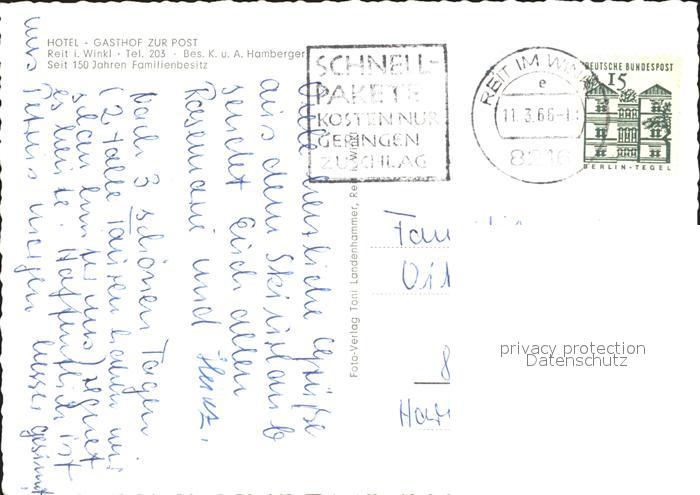 HOTEL · GASTHOF ZUR POST
Reit i. Winkl · Tel. 203 · Bes. K. u. A. Hamberger
Seit 150 Jahren Familienbesitz
SCHNELL-
PAKETE
KOSTEN NUR
GERINGEN
ZUSCHLAG
REIT IM WINKL
e
11.3.66-1
8216
DEUTSCHE BUNDESPOST
15
BERLIN-TEGEL
Foto-Verlag Toni Landenhammer, Reit i. Winkl
herzliche Grüße
aus dem Skiurlaub
sendet Euch allen
Rosemarie und
Nach 3 schönen Tagen
(2 tolle haben wir
regnet
es heute. Hoffentlich ist
Petrus morgen besser gesinnt
uns
Fam
8
privacy protection
Datenschutz